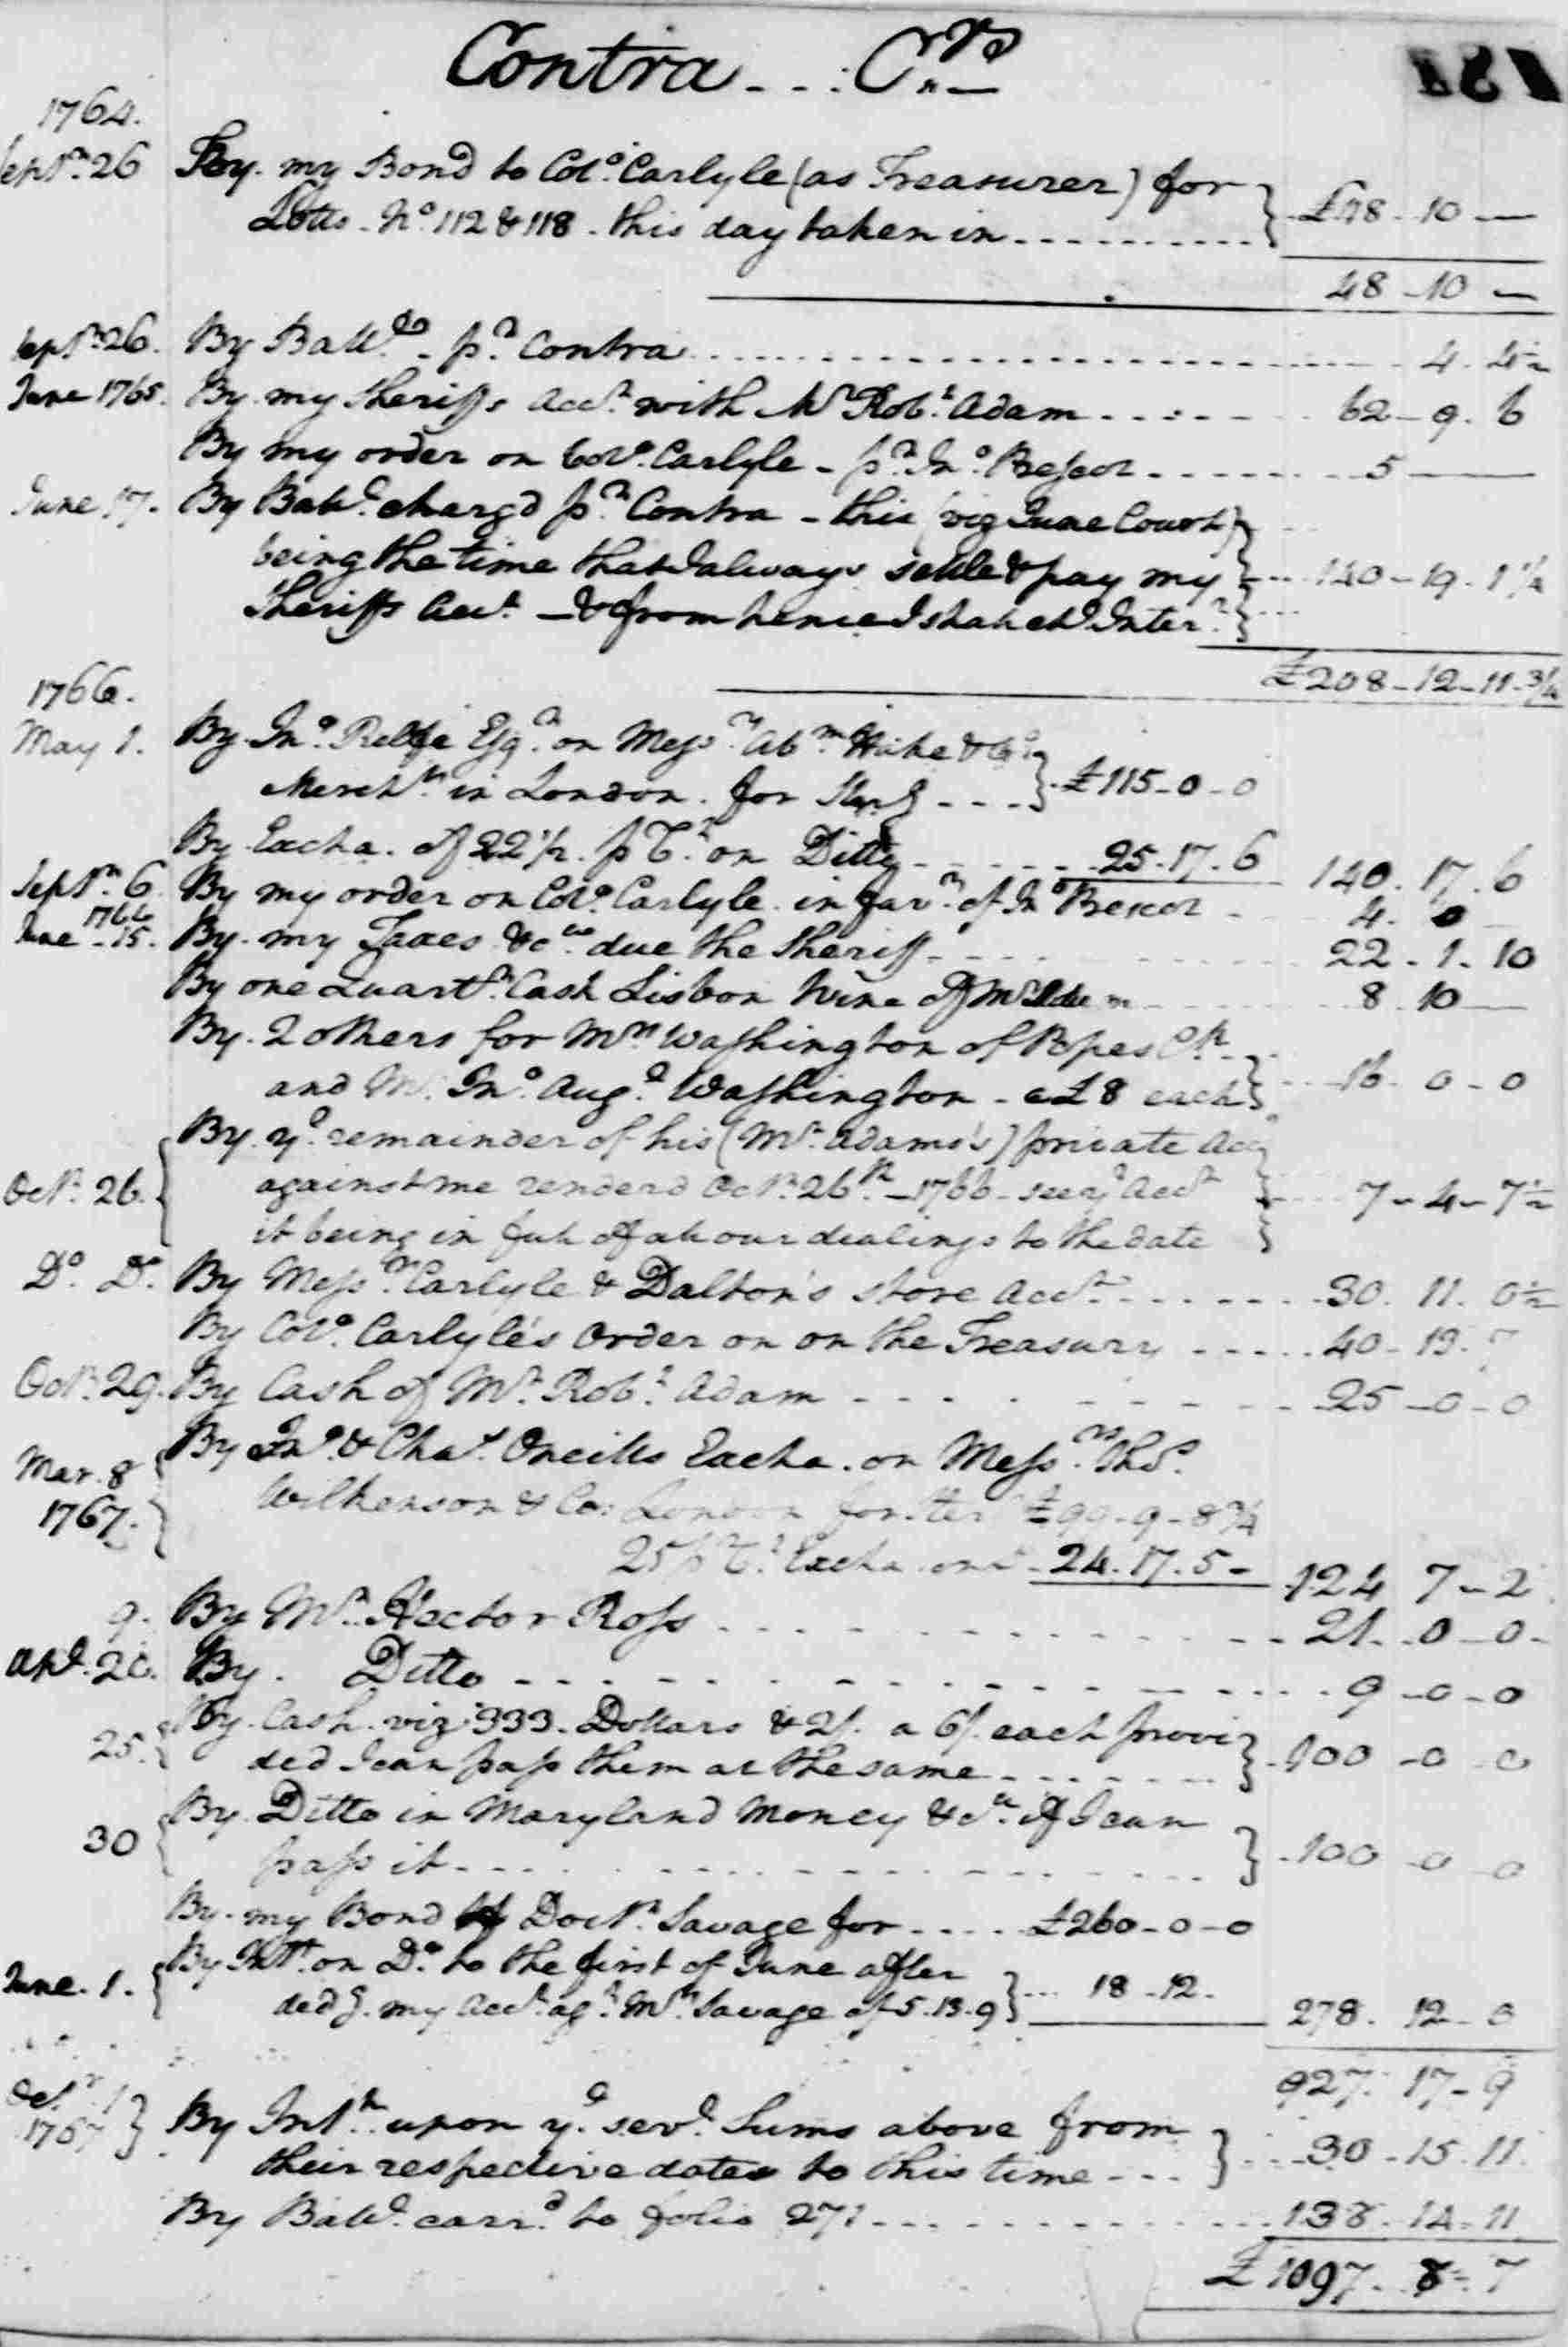 Contra - - - : Crs
1764.
Septr. 26 By my Bond to Colo. Carlyle (as Treasurer) for
Lotts - No. 112 & 118 - this day taken in £48 - 10 —
48 - 10 —
Septr. 26. By Balle. - pr. Contra 4. 4½
June 1765. By my Sheriffs Acct. with Mr Robt. Adam 62 - 9 - 6
By my order on Colo. Carlyle - pr. Jno. Bescot 5 —
June 17. By Balle. chargd pr. Contra - this (viz June Court)
being the time that I always settle & pay my 140 - 19 - 1 1/4
Sheriffs Acct. - & from hence I shall chd. Inter.
£208 - 12 - 11 - 3/4
1766.
May 1. By Jno. Relfe Esqr. on Messrs. Abm. Hake & Co.
Merchts. in London. for Sterg £115 - 0 - 0
By Excha. of 22 1/2. pr Ct. on Ditto 25. 17. 6 140. 17. 6
Septr. 6. By my order on Colo. Carlyle in favr. of Jno Bescot 4. 0
1766
June - 15. By my Taxes &ca. due the Sheriff 22 - 1 - 10
By one Quartr. Cask Lisbon Wine of Mr Adam 8 - 10 —
By 2 others for Mrs Washington of Popes Ck.
and Mr. Jno. Augt. Washington - a £8 each 16 - 0 - 0
By ye. remainder of his (Mr. Adams's) private Acct
Octr. 26. against me renderd Octr. 26th. - 1766 - see ye Acct 7 - 4 - 7½
it being in full of all our dealings to the date
Do. Do. By Messrs. Carlyle & Dalton's store Acct. 30. 11. 0½
By Colo. Carlyle's Order on on the Treasury 40 - 13. 7
Octr. 29. By Cash of Mr. Robt. Adam 25 - 0 - 0
By Jno. & Chas. Oneills Excha. on Messrs. Thos.
Mar. 8
1767. Wilkenson & Co: London for Ster £99 - 9 - 8 3/4
25 pr Ct. Excha. on Do 24. 17. 5 - 124 7 - 2
9. By Mr. Hector Ross 21. 0 - 0 -
Apl. 20. By Ditto 9 - 0 - 0
25. By Cash viz 333. Dollars & 2/. a 6/. each provi
ded I can pass them at the same 100 - 0 - 0
30 By Ditto in Maryland Money &ca. if I can
pass it 100 - 0 - 0
By my Bond of Doctr. Savage for £260 - 0 - 0
June. 1. By Intt. on Do. to the first of June after
dedg. my Acct. agt. Mrs. Savage of 5. 13. 9 18 - 12 - 278. 12 - 0
927. 17 - 9
Octr. 1
1767 By Intt. upon ye. sevl. Sums above from
their respective dates to this time 30 - 15. 11.
By Balle. carrd. to folio 271 138. 14 - 11
£1097. 8 - 7